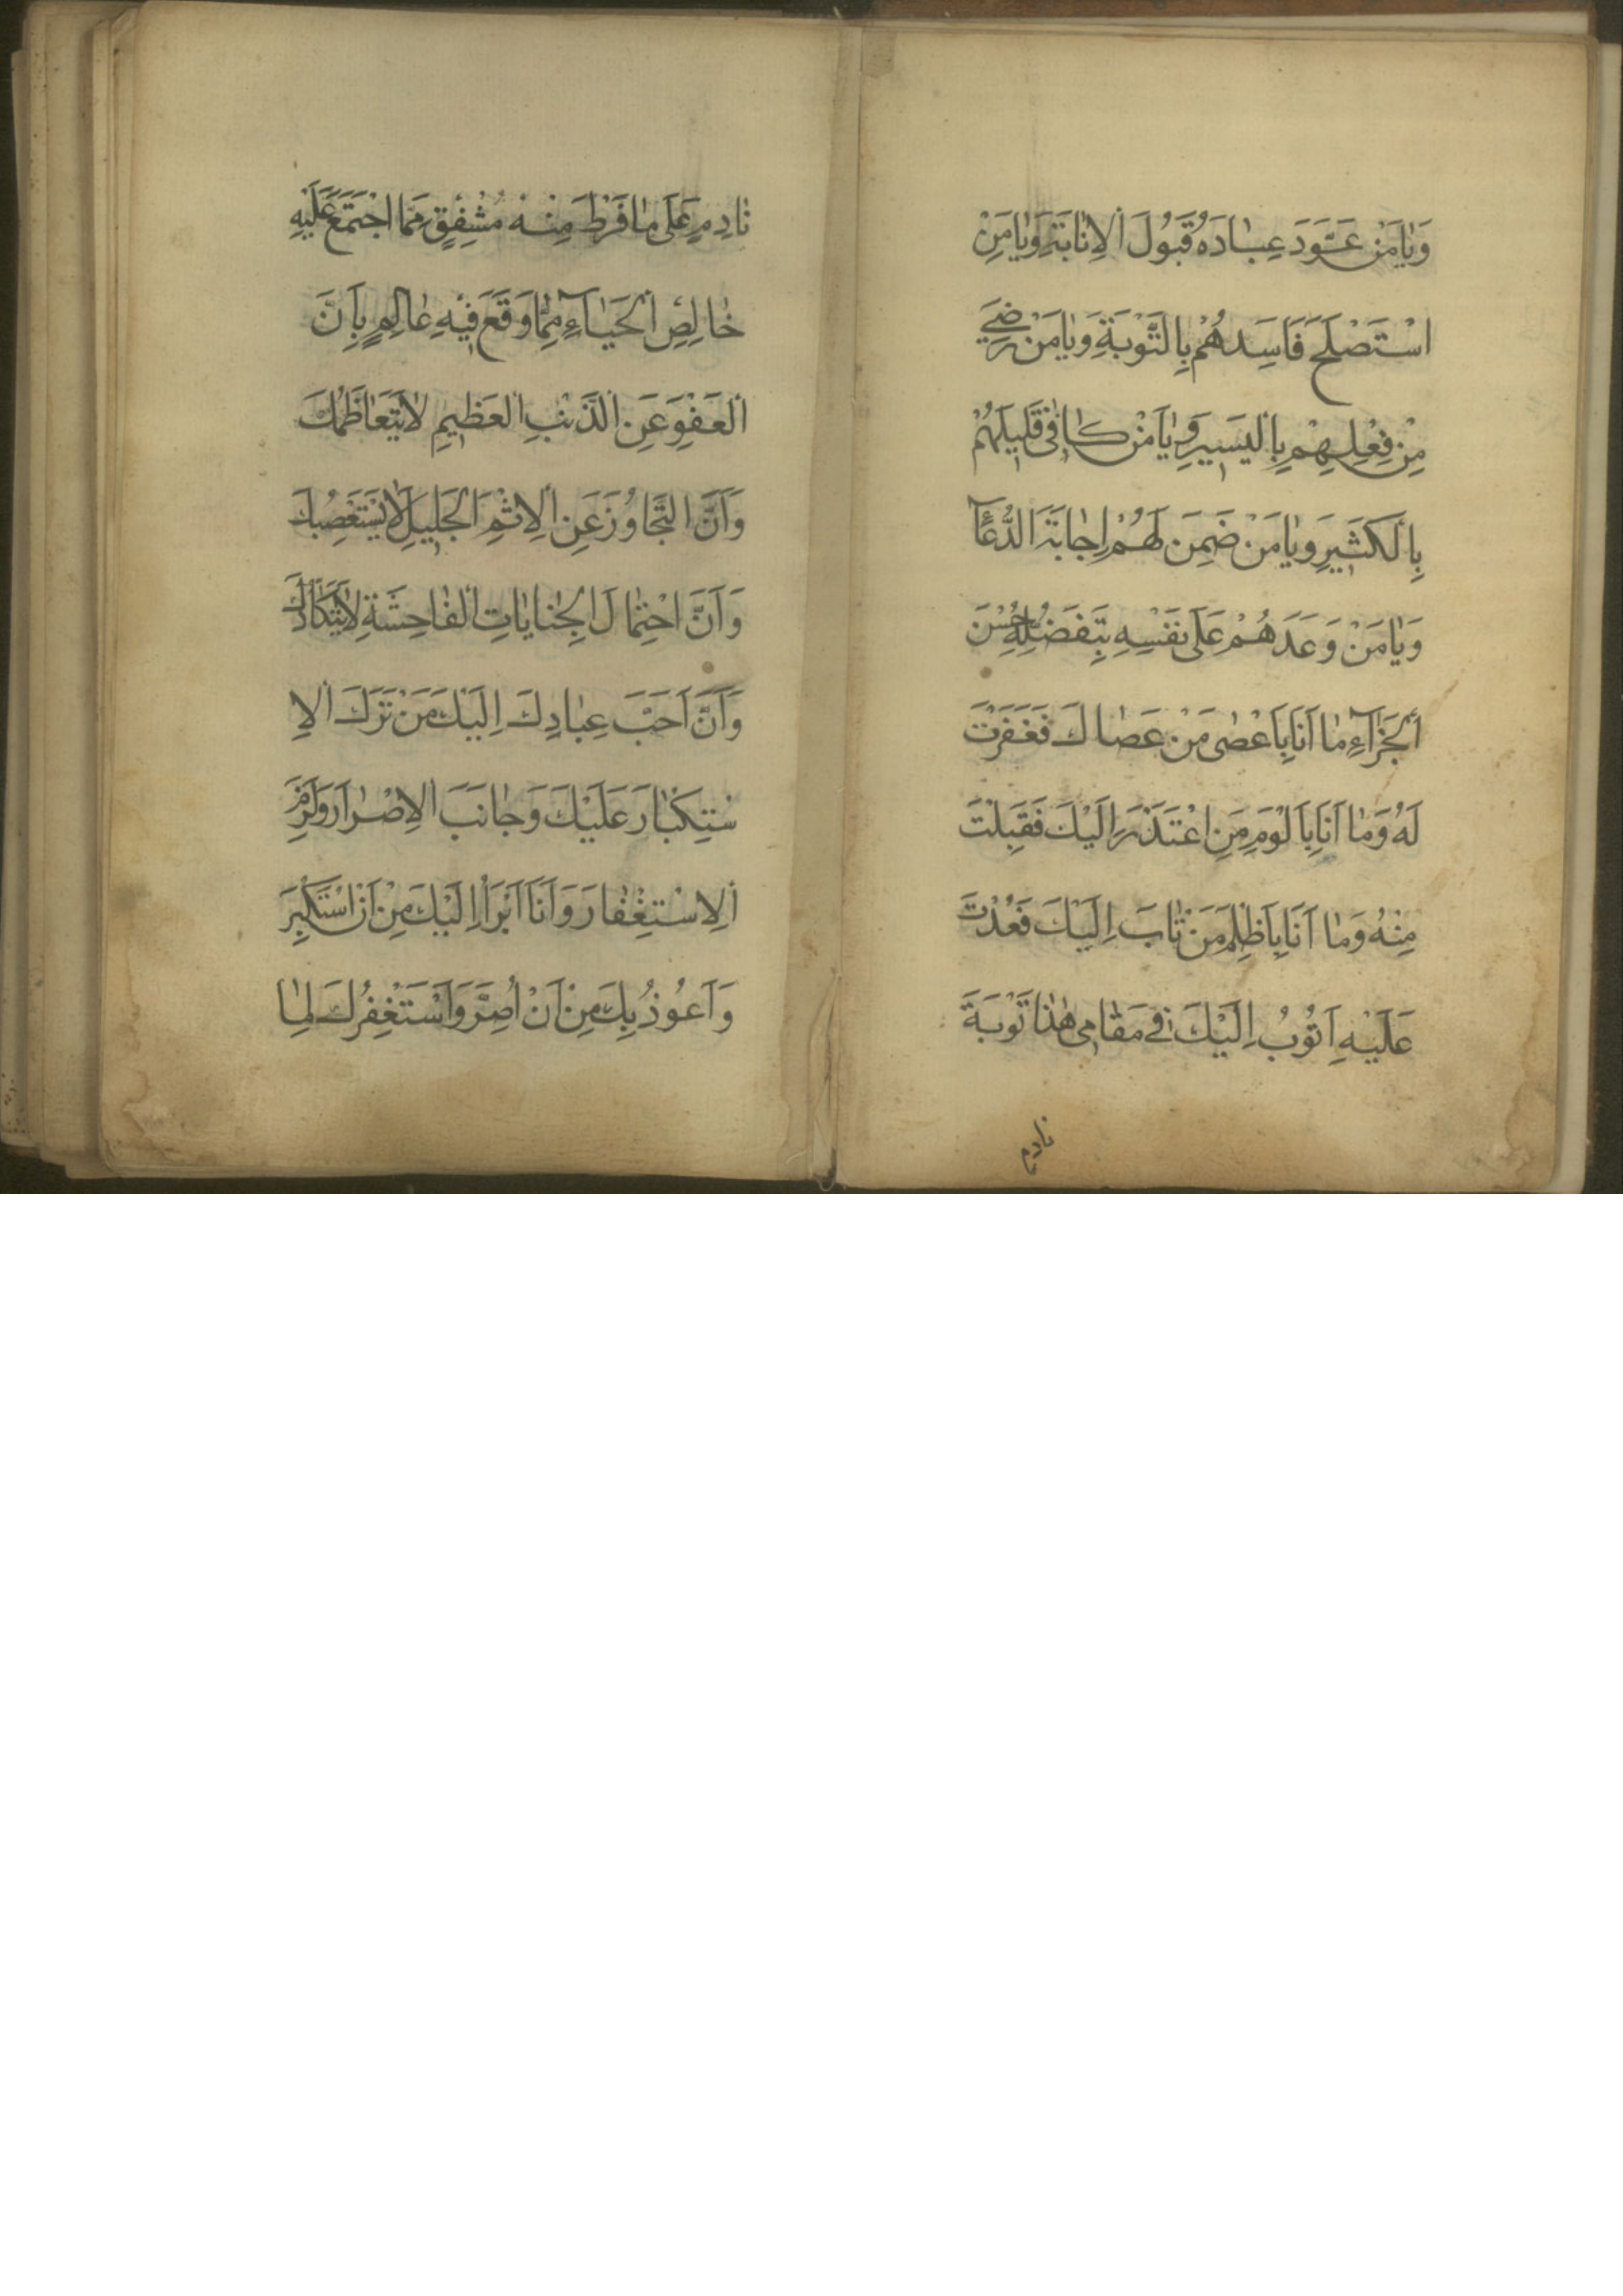 وَيَامَنْ عَوَّدَ عِبَادَهُ قَبُولَ الْاِنَابَةِ وَيَامَنِ
اسْتَصْلَحَ فَاسِدَهُمْ بِالتَّوْبَةِ وَيَامَنْ رَضِيَ
مِنْ فِعْلِهِمْ بِالْيَسِيرِ وَيَامَنْ كَافٰى قَلِيلَهُمْ
بِالْكَثِيرِ وَيَامَنْ ضَمِنَ لَهُمْ اِجَابَةَ الدُّعَآ
وَيَامَنْ وَعَدَهُمْ عَلٰى نَفْسِهِ بِتَفَضُّلِهِ حُسْنَ
الْجَزَآءِ مَا اَنَا بِاَعْصٰى مَنْ عَصَاكَ فَغَفَرْتَ
لَهُ وَمَا اَنَا بِاَلْوَمِ مَنِ اعْتَذَرَ اِلَيْكَ فَقَبِلْتَ
مِنْهُ وَمَا اَنَا بِاَظْلَمِ مَنْ تَابَ اِلَيْكَ فَعُدْتَ
عَلَيْهِ اَتُوبُ اِلَيْكَ فِي مَقَامِي هٰذَا تَوْبَةَ
نادم
نَادِمٍ عَلٰى مَا فَرَطَ مِنْهُ مُشْفِقٍ مِمَّا اجْتَمَعَ عَلَيْهِ
خَالِصِ الْحَيَآءِ مِمَّا وَقَعَ فِيهِ عَالِمٍ بِاَنَّ
الْعَفْوَ عَنِ الذَّنْبِ الْعَظِيمِ لَا يَتَعَاظَمُكَ
وَاَنَّ التَّجَاوُزَ عَنِ الْاِثْمِ الْجَلِيلِ لَا يَسْتَصْعِبُكَ
وَاَنَّ احْتِمَالَ الْجِنَايَاتِ الْفَاحِشَةِ لَا يَتَكَاَّدُكَ
وَاَنَّ اَحَبَّ عِبَادِكَ اِلَيْكَ مَنْ تَرَكَ الْاِ
سْتِكْبَارَ عَلَيْكَ وَجَانَبَ الْاِصْرَارَ وَلَزِمَ
الْاِسْتِغْفَارَ وَاَنَا اَبْرَأُ اِلَيْكَ مِنْ اَنْ اَسْتَكْبِرَ
وَاَعُوذُ بِكَ مِنْ اَنْ اُصِرَّ وَاَسْتَغْفِرُكَ لِمَا